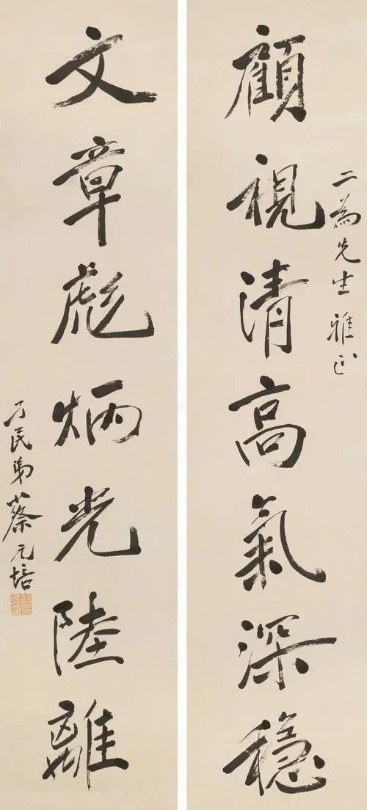 二為先生雅正
顧視清高氣深穩
文章彪炳光陸離
孑民弟蔡元培